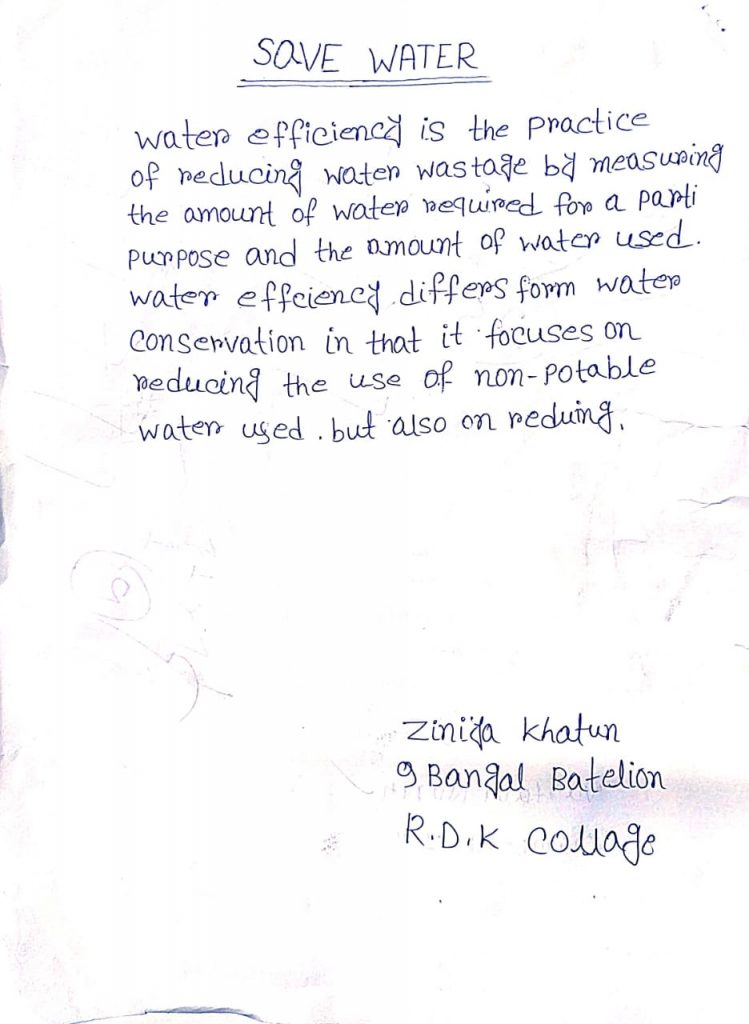 SAVE WATER
water efficiency is the practice
of reducing water wastage by measuring
the amount of water required for a parti
purpose and the amount of water used.
water effciency differs form water
conservation in that it focuses on
reducing the use of non-potable
water used. but also on reduing.
Khatun
9 Bangal Batelion
R.D.K Collage